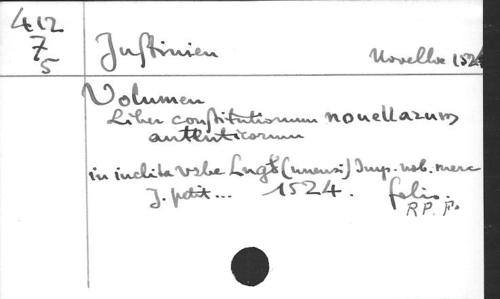 412
7
5
Justinien Novellae 1524
Volumen
Liber constitutionum nouellarum
authenticorum
in inclita vrbe Lugd(unensi) Imp. nob. merc
J. petit... 1524. folio.
R P.